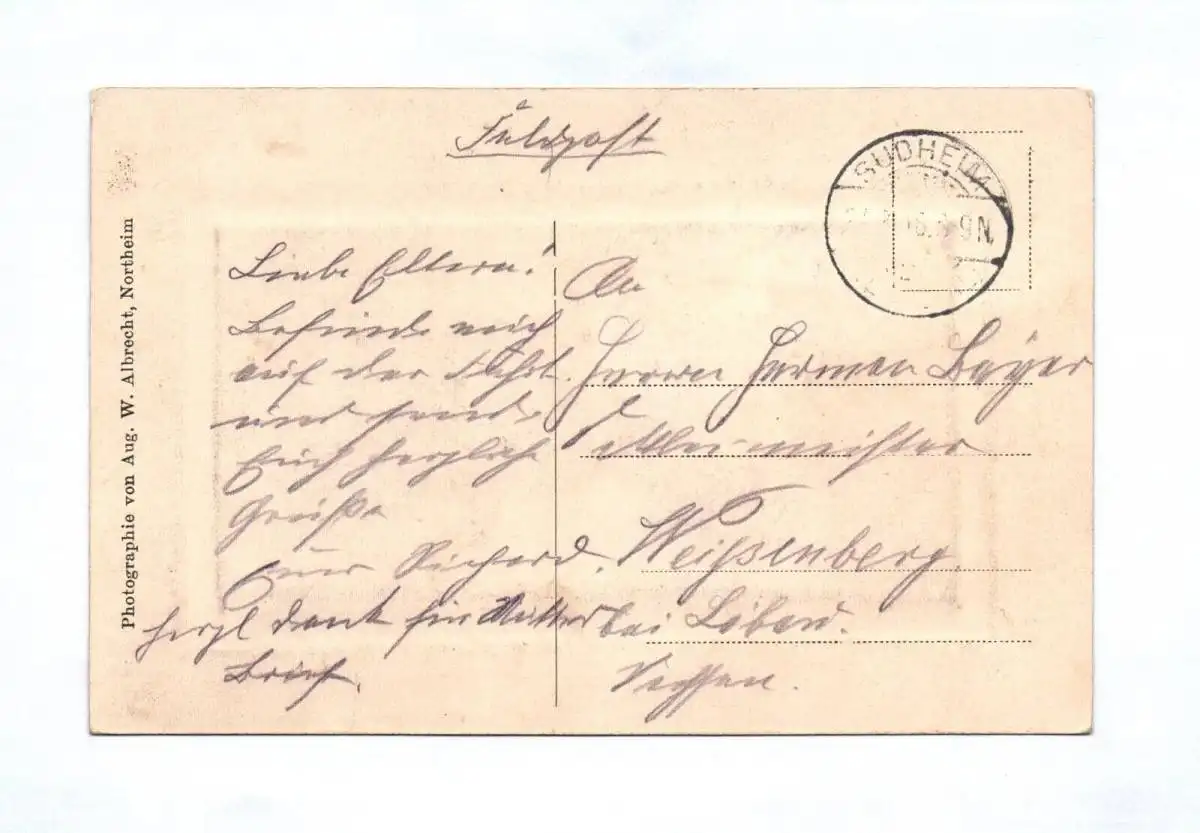 Feldpost
SUDHEIM
9N.
Photographie von Aug. W. Albrecht, Northeim
Liebe Eltern!
Befinde mich
auf der Fahrt
und sende
Euch herzliche
Grüße
Euer Richard.
herzl Dank für Mutter
Brief.
An
Herrn Herman Bayer
meister
Weißenberg
bei Löbau.
Sachsen.